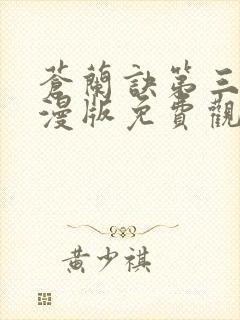 蒼蘭訣第三
漫版免費觀
黃少祺